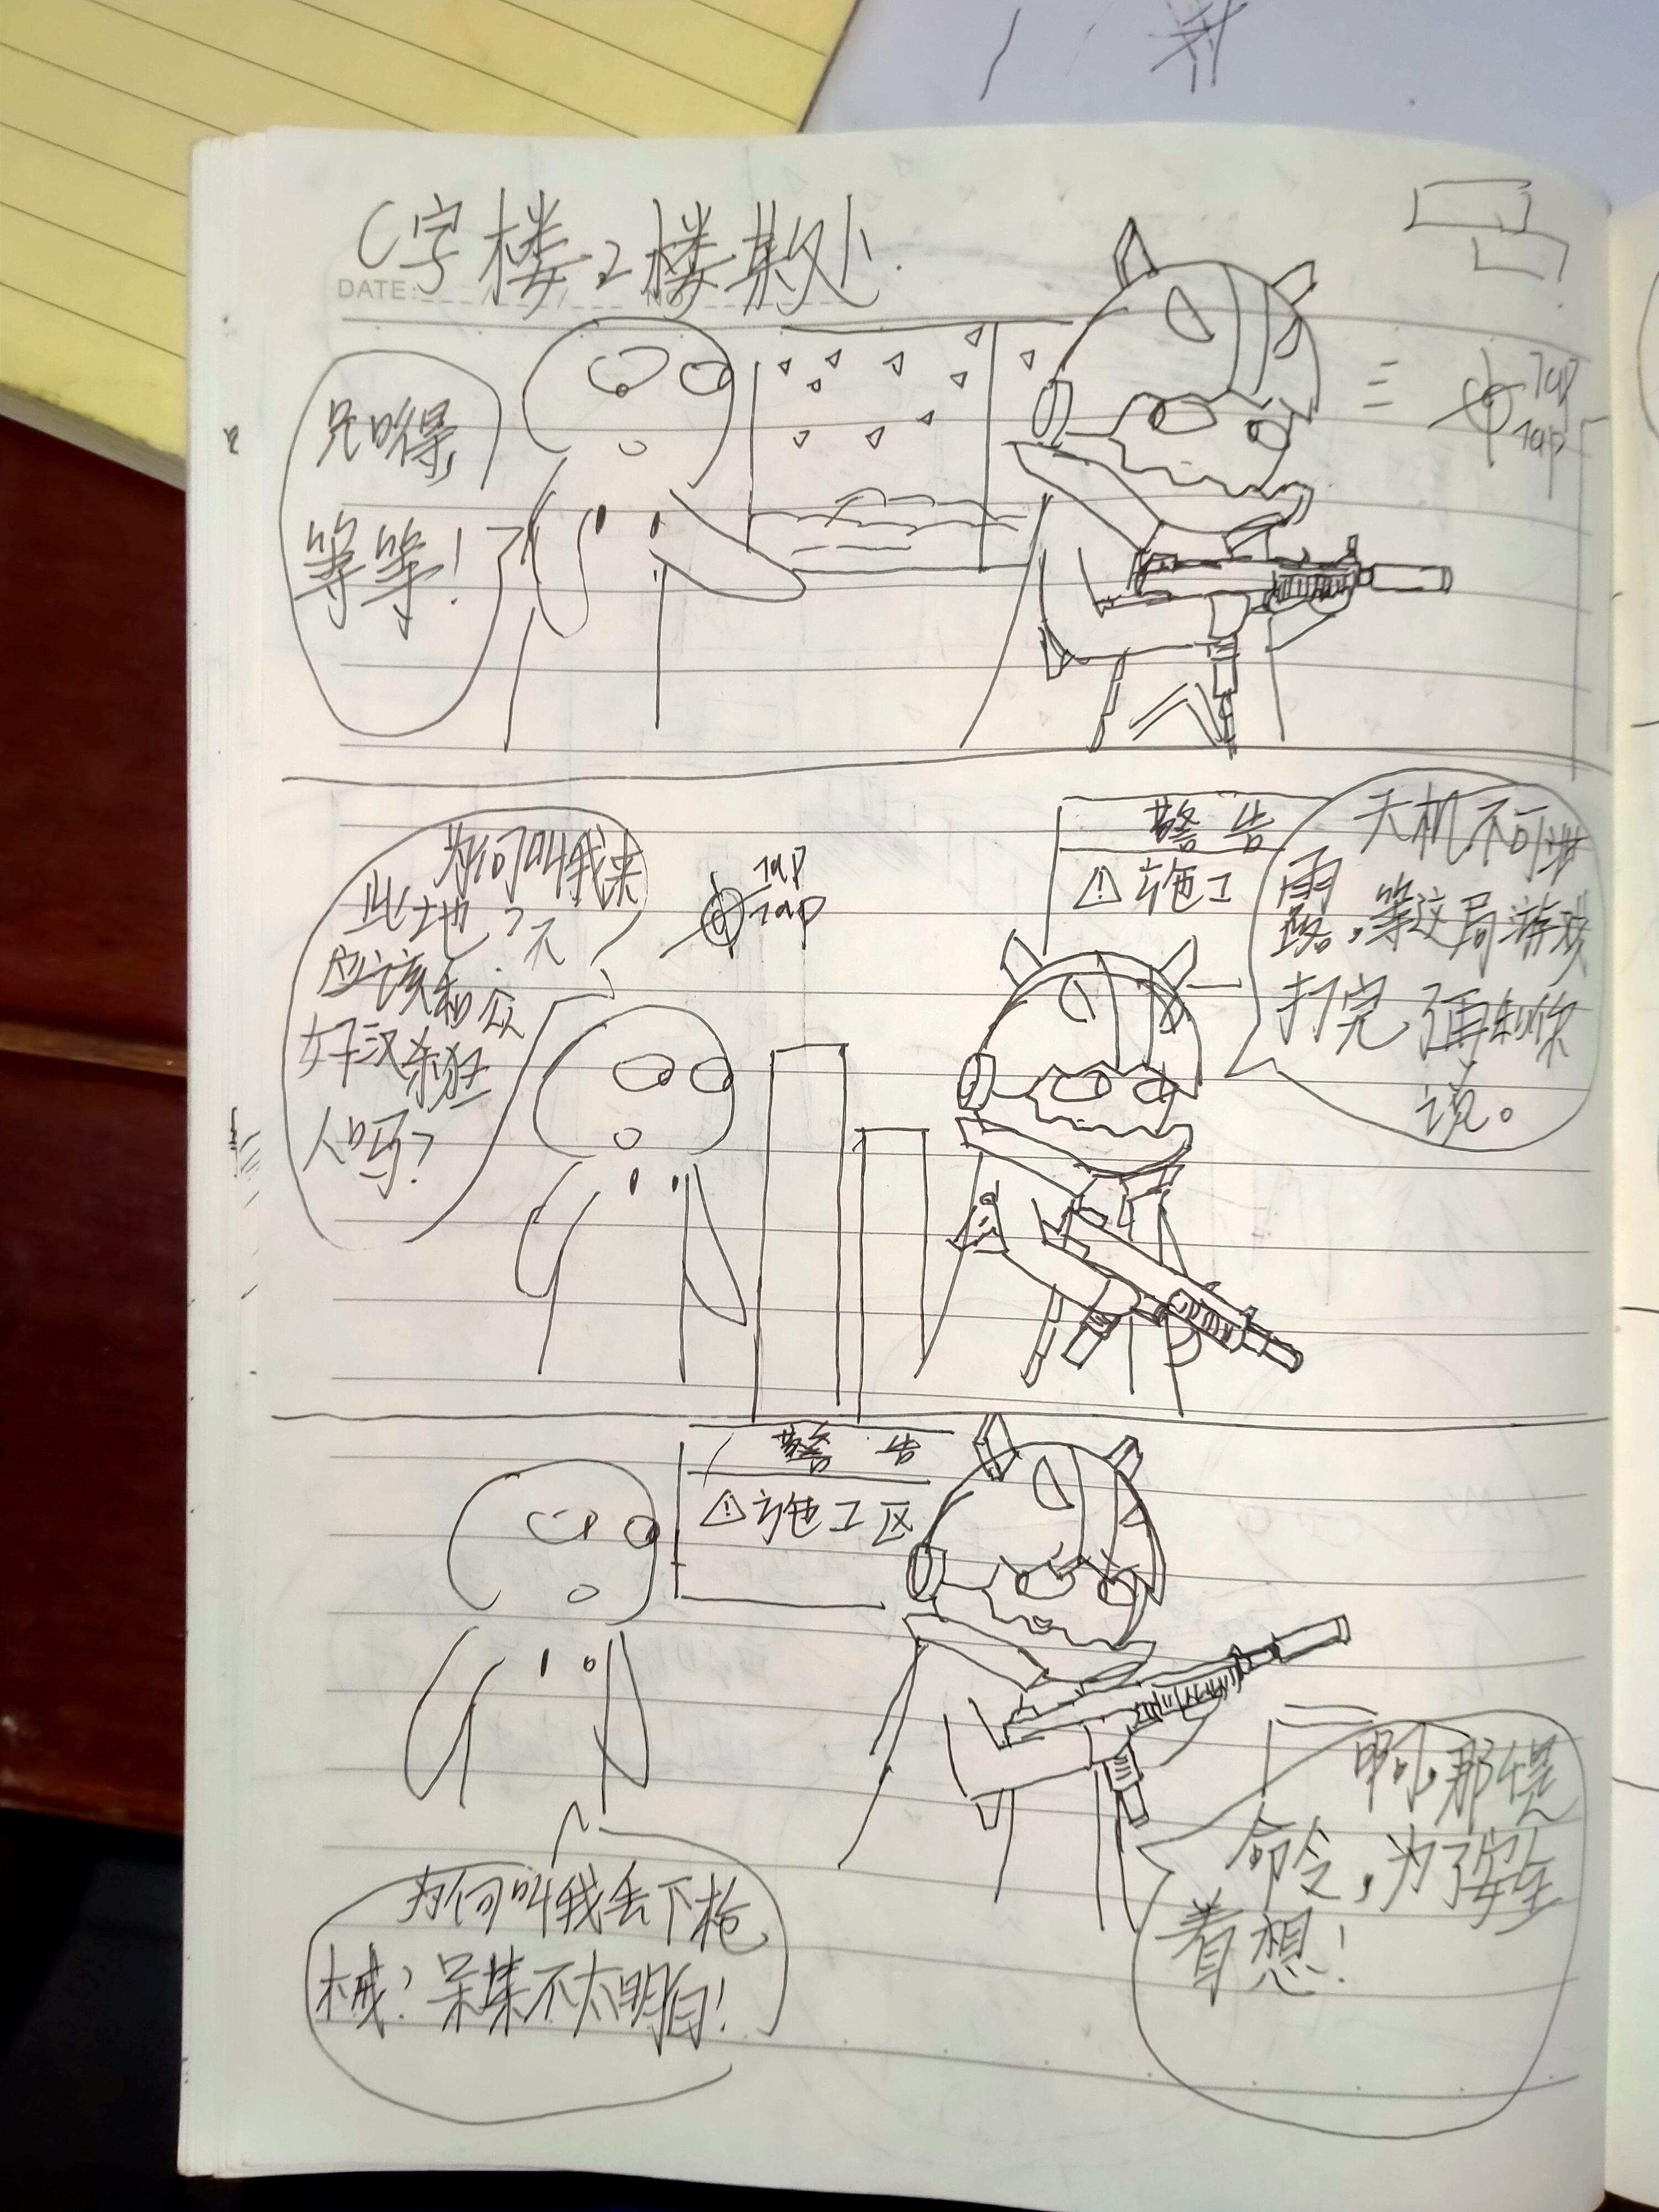 C字楼2楼某处
DATE:
兄嘚,
等等!
Tap
Tap
警告
⚠施工
天机不可泄
露,等这局游戏
打完了再和你
说。
为何叫我来
此地?不
应该和众
好汉杀狂
人吗?
Tap
Tap
警告
⚠施工区
啊,那是
命令,为了安全
着想!
为何叫我丢下枪
械?呆某不太明白!